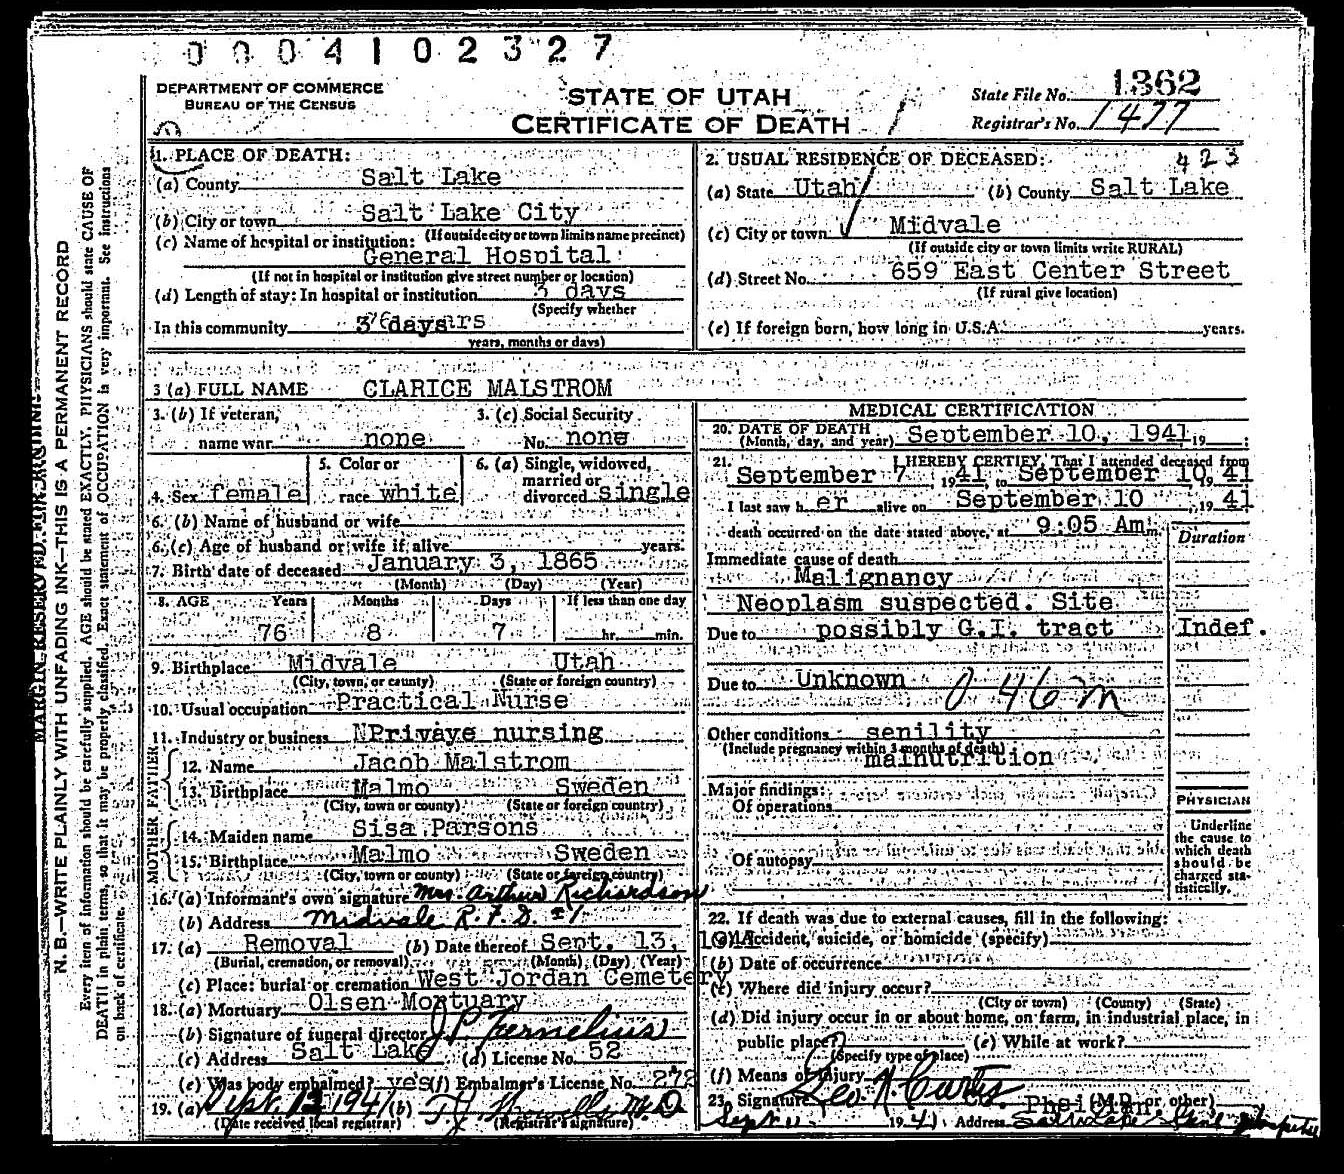 0004102327
DEPARTMENT OF COMMERCE
BUREAU OF THE CENSUS
STATE OF UTAH
CERTIFICATE OF DEATH
State File No. 1362
Registrar's No. 1477
1. PLACE OF DEATH:
(a) County Salt Lake
(b) City or town Salt Lake City
(If outside city or town limits name precinct)
(c) Name of hospital or institution:
General Hospital
(If not in hospital or institution give street number or location)
(d) Length of stay: In hospital or institution 3 days
(Specify whether
In this community 3 days
years, months or days)
2. USUAL RESIDENCE OF DECEASED: 423
(a) State Utah (b) County Salt Lake
(c) City or town Midvale
(If outside city or town limits write RURAL)
(d) Street No. 659 East Center Street
(If rural give location)
(e) If foreign born, how long in U.S.A. years.
3 (a) FULL NAME CLARICE MALSTROM
3. (b) If veteran,
name war none
3. (c) Social Security
No. none
4. Sex female
5. Color or
race white
6. (a) Single, widowed,
married or
divorced single
6. (b) Name of husband or wife
6. (c) Age of husband or wife if alive years.
7. Birth date of deceased January 3, 1865
(Month) (Day) (Year)
8. AGE Years Months Days If less than one day
76 8 7 hr. min.
9. Birthplace Midvale Utah
(City, town, or county) (State or foreign country)
10. Usual occupation Practical Nurse
11. Industry or business Privaye nursing
FATHER
12. Name Jacob Malstrom
13. Birthplace Malmo Sweden
(City, town or county) (State or foreign country)
MOTHER
14. Maiden name Sisa Parsons
15. Birthplace Malmo Sweden
(City, town or county) (State or foreign country)
16. (a) Informant's own signature Mrs. Arthur Richardson
(b) Address Midvale R.F.D. #1
17. (a) Removal (b) Date thereof Sept. 13, 1941
(Burial, cremation, or removal) (Month) (Day) (Year)
(c) Place: burial or cremation West Jordan Cemetery
18. (a) Mortuary Olsen Mortuary
(b) Signature of funeral director J.P. Fernelius
(c) Address Salt Lake (d) License No. 52
(e) Was body embalmed? yes (f) Embalmer's License No. 272
19. (a) Sept. 12 1941 (b) M.D.
(Date received local registrar) (Registrar's signature)
MEDICAL CERTIFICATION
20. DATE OF DEATH
(Month, day, and year) September 10, 1941 19 ;
21. I HEREBY CERTIFY, That I attended deceased from
September 7, 1941, to September 10, 1941
I last saw h er alive on September 10, 1941
death occurred on the date stated above, at 9:05 Am m.
Duration
Immediate cause of death
Malignancy
Neoplasm suspected. Site
Due to possibly G.I. tract Indef.
Due to Unknown 046m
Other conditions senility
(Include pregnancy within 3 months of death)
malnutrition
Major findings:
Of operations
Of autopsy
PHYSICIAN
Underline
the cause to
which death
should be
charged sta-
tistically.
22. If death was due to external causes, fill in the following:
(a) Accident, suicide, or homicide (specify)
(b) Date of occurrence
(c) Where did injury occur?
(City or town) (County) (State)
(d) Did injury occur in or about home, on farm, in industrial place, in
public place? (e) While at work?
(Specify type of place)
(f) Means of injury
23. Signature Geo. N. Curtis (M.D. or other)
Sept 11 1941 Address Salt Lake Genl Hospital
MARGIN RESERVED FOR BINDING
N. B.—WRITE PLAINLY WITH UNFADING INK—THIS IS A PERMANENT RECORD
Every item of information should be carefully supplied. AGE should be stated EXACTLY. PHYSICIANS should state CAUSE OF
DEATH in plain terms, so that it may be properly classified. Exact statement of OCCUPATION is very important. See instructions
on back of certificate.